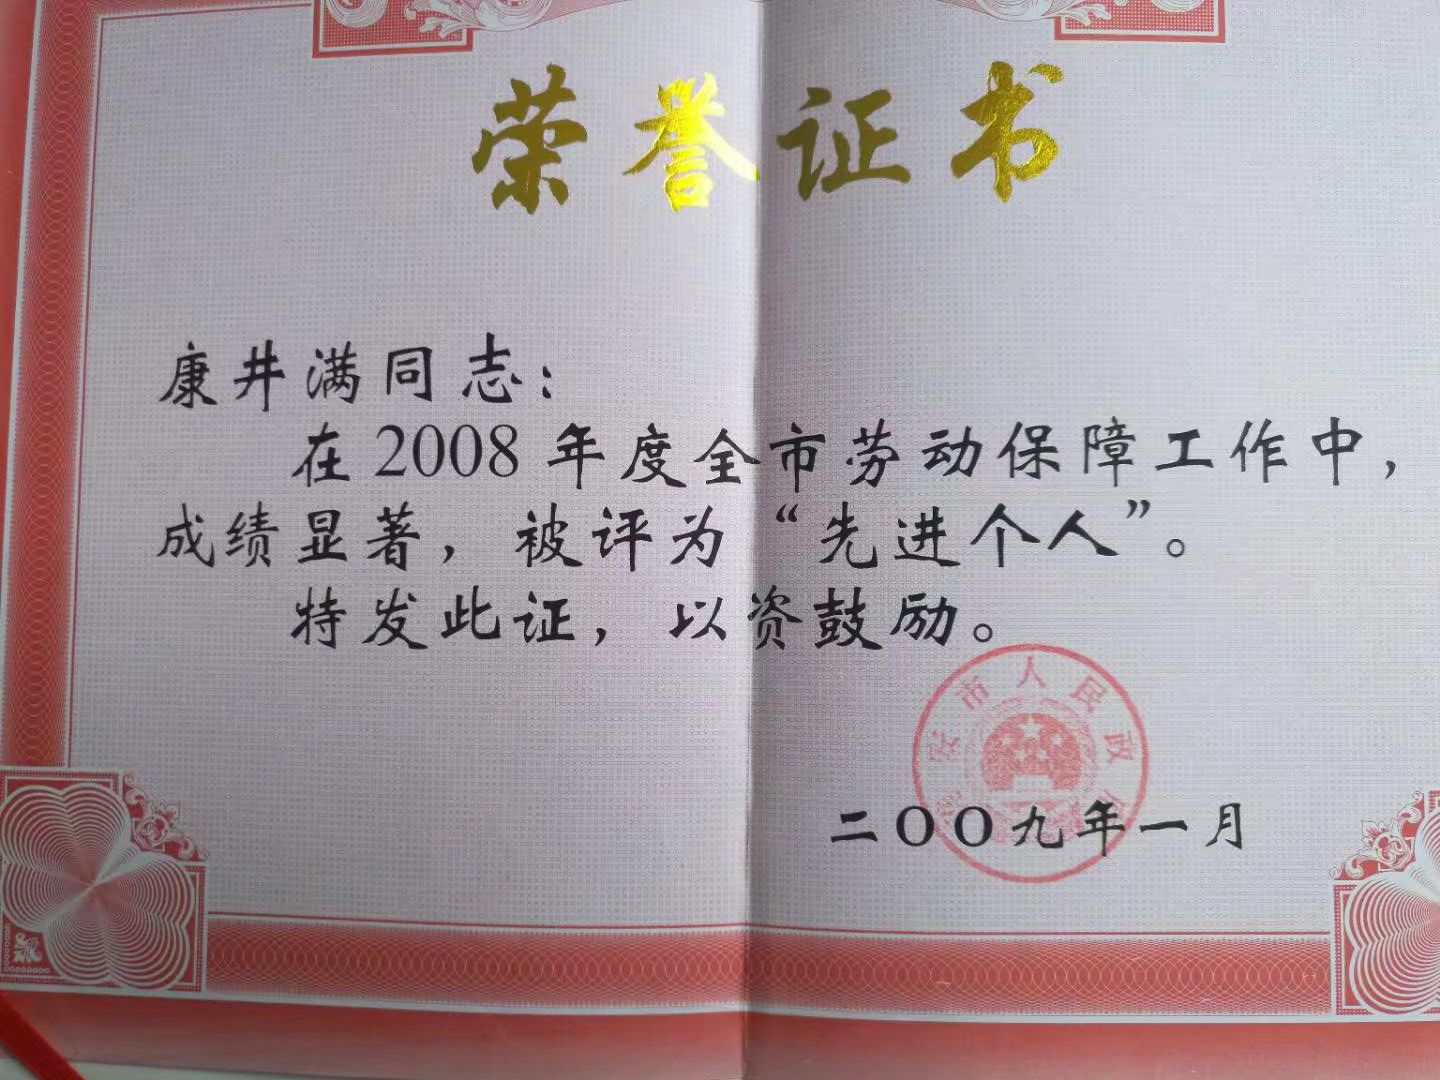 荣誉证书
康井满同志：
在2008年度全市劳动保障工作中，
成绩显著，被评为“先进个人”。
特发此证，以资鼓励。
安市人民政府
二OO九年一月